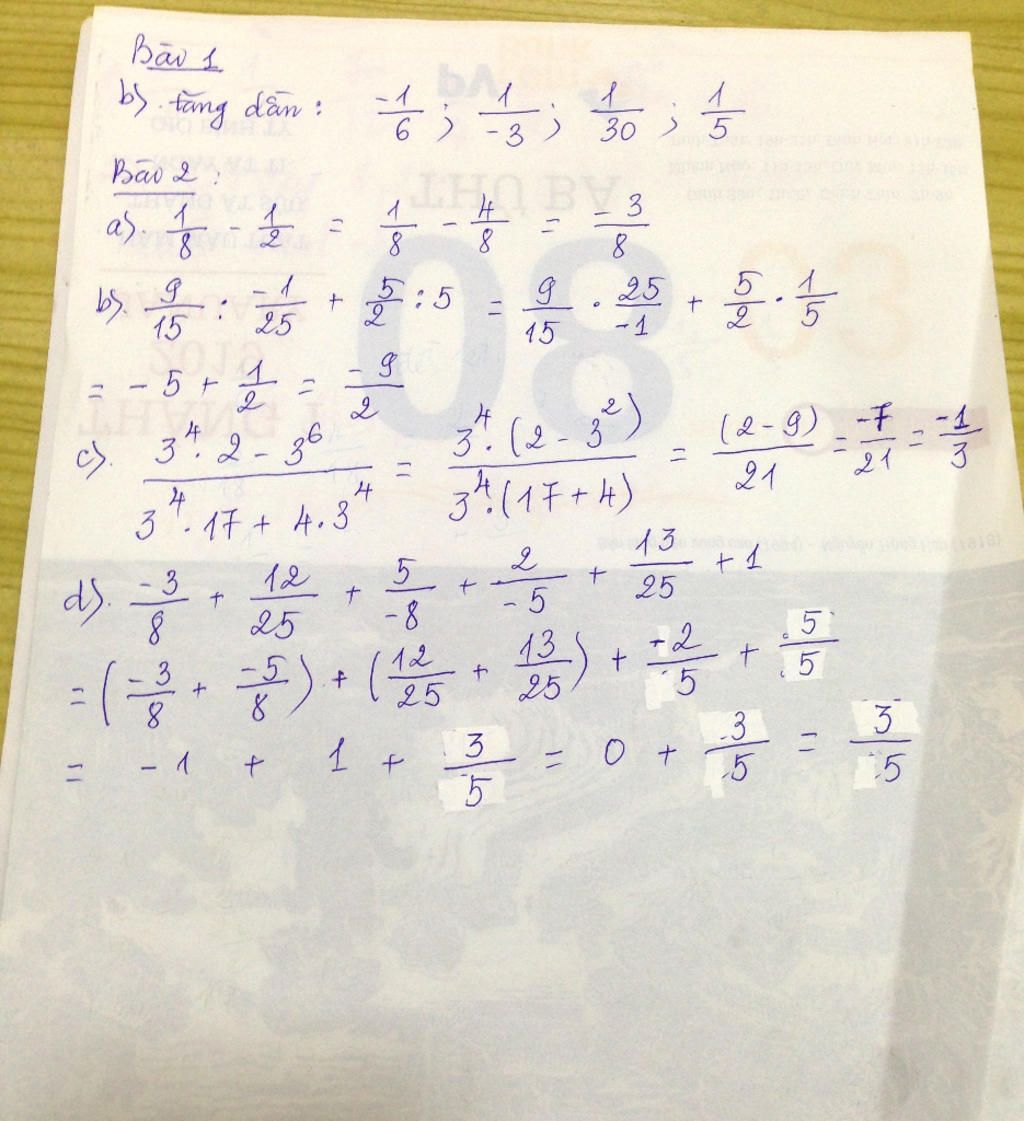 Bài 1
b). tăng dần: -1/6 ; 1/-3 ; 1/30 ; 1/5
Bài 2:
a). 1/8 - 1/2 = 1/8 - 4/8 = -3/8
b). 9/15 : -1/25 + 5/2 : 5 = 9/15 . 25/-1 + 5/2 . 1/5
= -5 + 1/2 = -9/2
c). (3^4 . 2 - 3^6)/(3^4 . 17 + 4 . 3^4) = (3^4 . (2 - 3^2))/(3^4 . (17 + 4)) = (2-9)/21 = -7/21 = -1/3
d). -3/8 + 12/25 + 5/-8 + 2/-5 + 13/25 + 1
= (-3/8 + -5/8) + (12/25 + 13/25) + -2/5 + 5/5
= -1 + 1 + 3/5 = 0 + 3/5 = 3/5